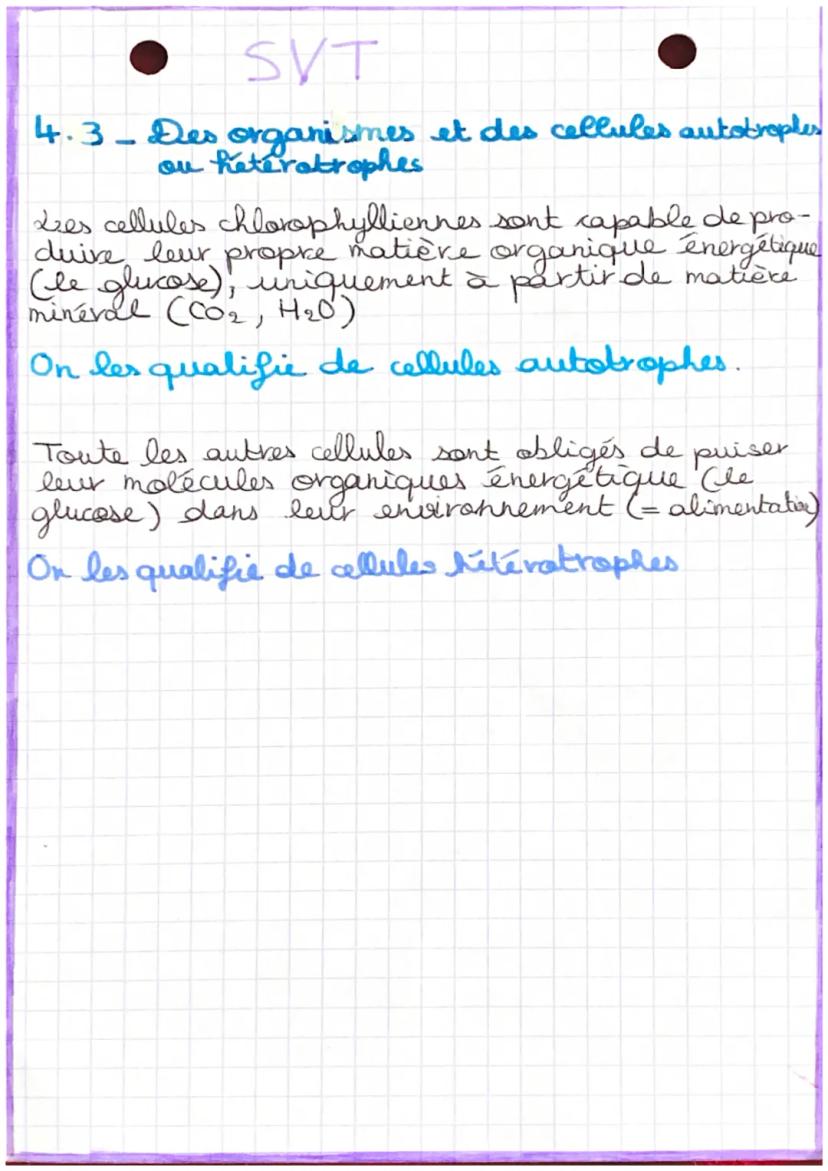 SVT
4.3 - Des organismes et des cellules autotrophes
ou hétérotrophes
Les cellules chlorophylliennes sont capable de pro-
duire leur propre matière organique énergétique
(le glucose), uniquement à partir de matière
minéral (CO2, H2O)
On les qualifie de cellules autotrophes.
Toute les autres cellules sont obligés de puiser
leur molécules organiques énergétique (le
glucose) dans leur environnement (= alimentation)
On les qualifie de cellules hétérotrophes